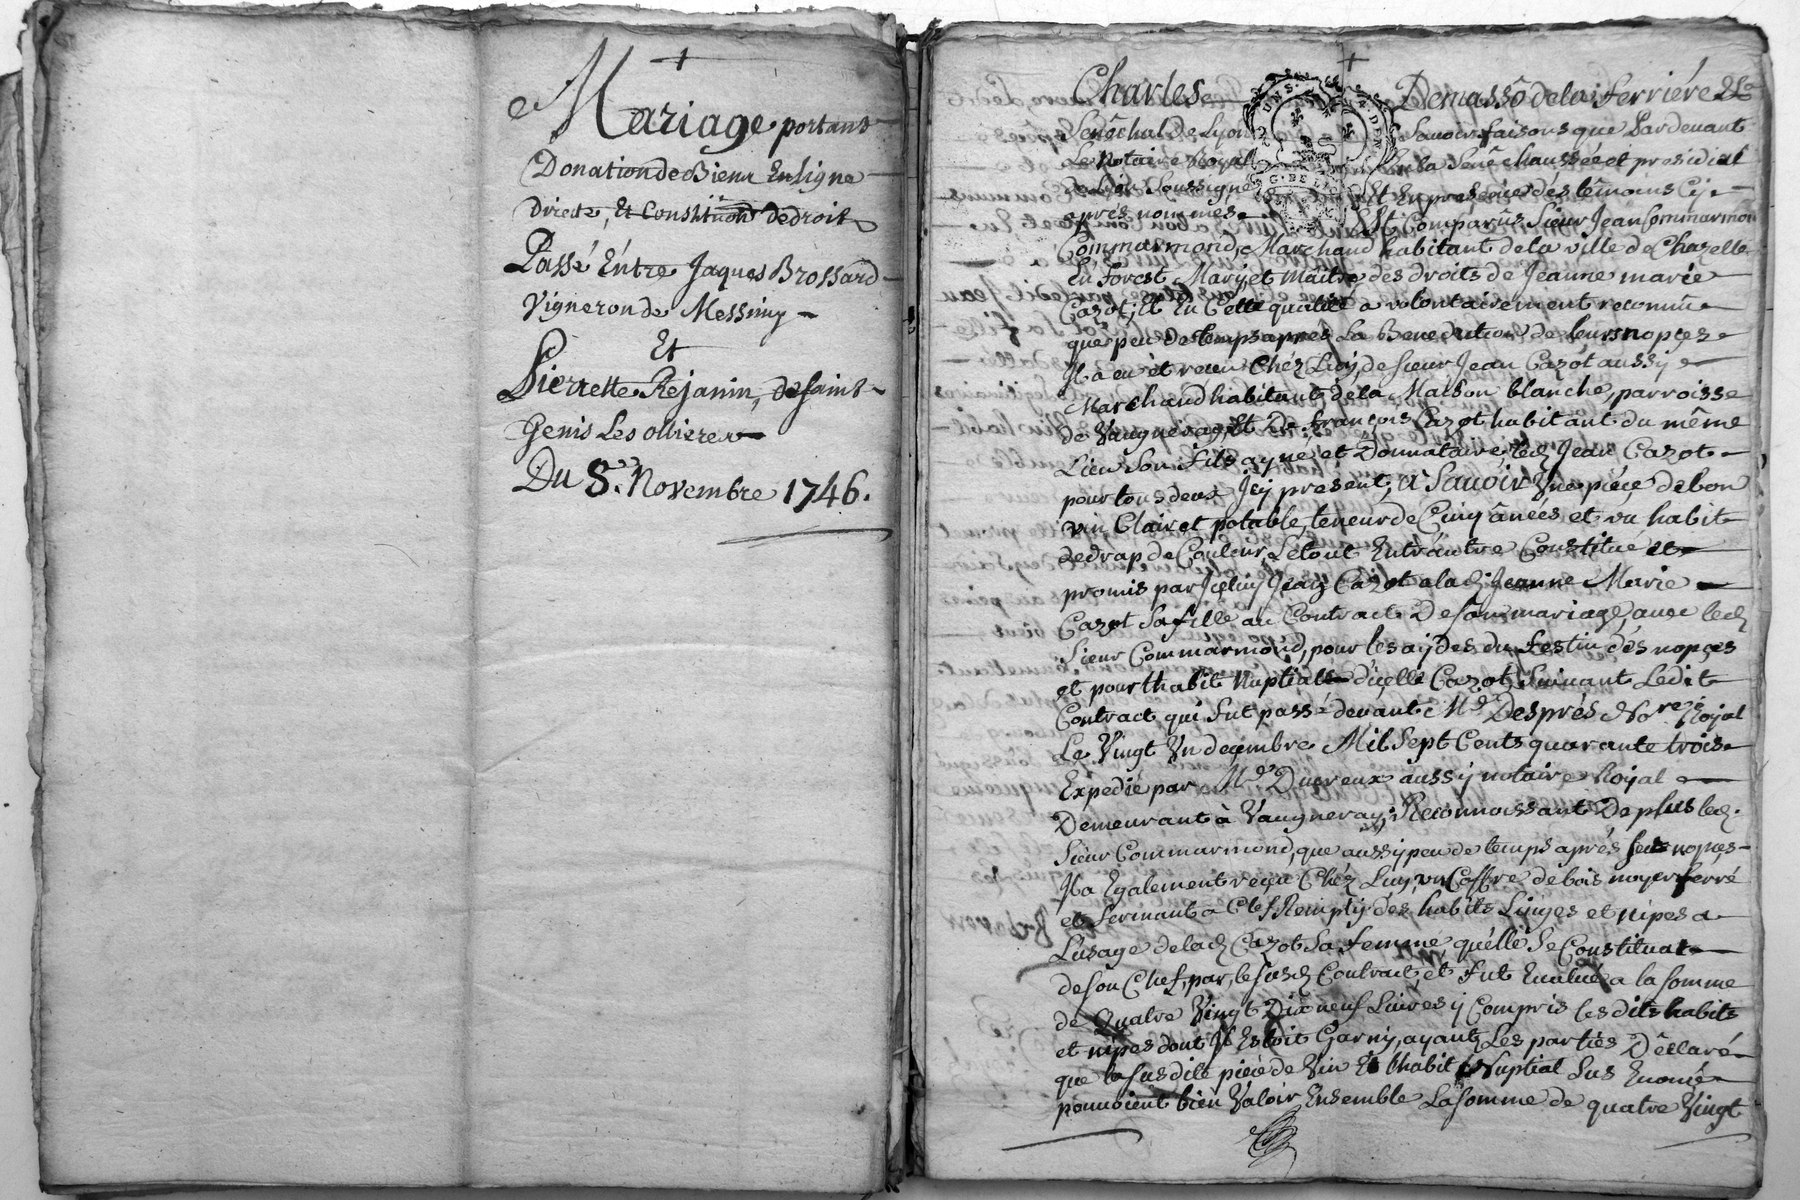 Mariage portant
Donation de Biens En Ligne
Directe, Et Constitution de droits
Passé Entre Jaques Brossard
Vigneron de Messimy
Et
Pierrette Rejanin, de saint
Genis Les ollieres
Du 8.e Novembre 1746.
Charles Demasso de la ferriére &c
Senêchal de Lyon Savoir faisons que Pardevant
Le Notaire Royal En la Senêchaussée et presidial
de Lion Soussigné Et En presence dés têmoins Cy
aprés nommés Est Comparu Sieur Jean Commarmon
Commarmond, Marchand habitant de la ville de Chazelle
En forest Mary et maitre des droits de Jeanne marie
Cazot, Et En Cette qualité a volontairement reconnu
que peu de temps apres La Benediction de leurs nopces
Il a eu et receu Chéz Luy, de sieur Jean Cazot aussy
Marchand habitant de la Maison blanche, parroisse
de Vaugneray, Et De françois Cazot habitant du même
Lieu Son fils ayne et Donnataire, led Jean Cazot
pour tous deux Icy present, a Savoir Une piéce de bon
vin Clair et potable, teneur de Cinq ânées et un habit
de drap de Couleur, Letout Entr'autre Constitué et
promis par Iceluy Jean Cazot a lad Jeanne Marie
Cazot Sa fille au Contract De son mariage, avec led
Sieur Commarmond, pour les aydes du festin dés nopces
et pour l'habit Nuptial d'icelle Cazot, Suivant Ledit
Contract qui fut passé devant Me Després Nore Royal
Le Vingt Un decembre Mil Sept Cents quarante trois
Expedié par Me Ducreux aussy notaire Royal
Demeurant à Vaugneray; Reconnoissant De plus led.
Sieur Commarmond, que aussy peu de temps aprés ses nopces
Il a Egalement reçu Chéz Luy, un Coffre de bois noyer ferré
et fermant a Clef Remply dés habits Linges et nipes a
L'usage de lad Cazot Sa femme, qu'elle Se Constitua
de son Chef, par le susd Contract, et fut Evalué a la somme
de Quatre Vingt Dix neuf Livres y Compris les dits habits
et nipes dont Il Estoit Garny, ayant Les parties Dêclaré
que la susdite piéce de Vin Et l'habit Nuptial Sus Enoncé
pouvoient bien Valoir Ensemble La somme de quatre Vingt